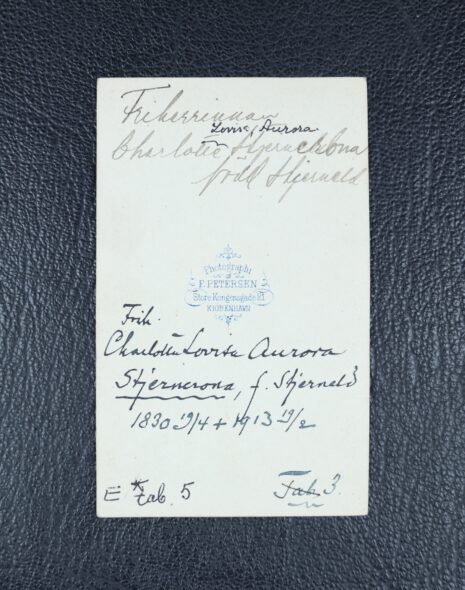 Friherrinnan
Lovisa Aurora
Charlotte Stjernekrona
född Stjerneld
Photographi
af
F. PETERSEN
Store Kongensgade 21
KJÖBENHAVN
Frih.
Charlotta Lovisa Aurora
Stjerncrona, f. Stjerneld
1830 19/4 + 1913 19/2
Tab. 5
Tab. 3.